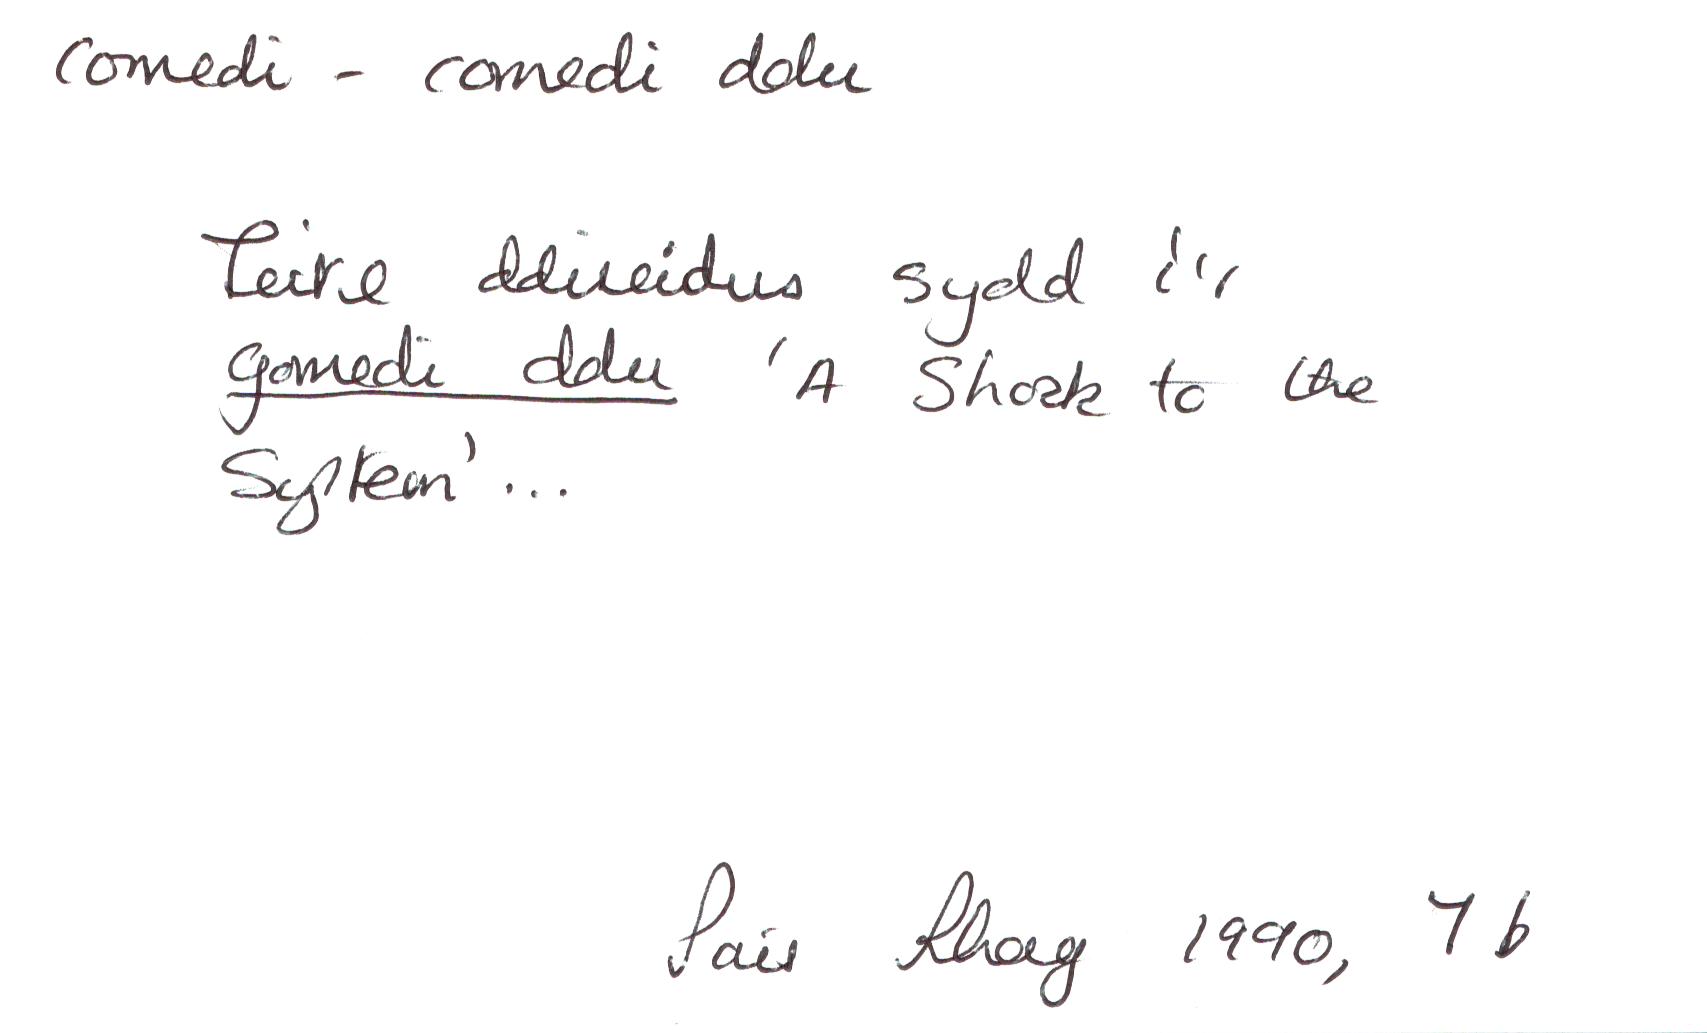 comedi - comedi ddu
Teitl ddireidus sydd i'r
gomedi ddu 'A Shock to the
System'...
Rhag 1990, 7b